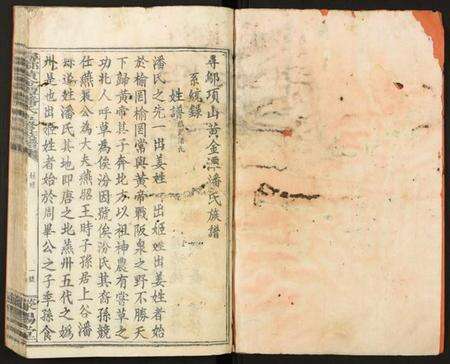 尋鄔項山黃金潭潘氏族譜
系統錄
姓譜
潘氏之先一出姜姓一出姬姓出姜姓者始
於榆罔榆罔常與黃帝戰阪泉之野不勝天
下歸黃帝其子奔北方以祖神農有嘗草之
功北人呼草為俟汾因號俟汾氏其裔孫競
仕燕襄公為大夫燕昭王時子孫居上谷潘
遂姓潘氏其地即唐之北燕卅五代之媯
卅是也出姬姓者始於周畢公之子季孫食